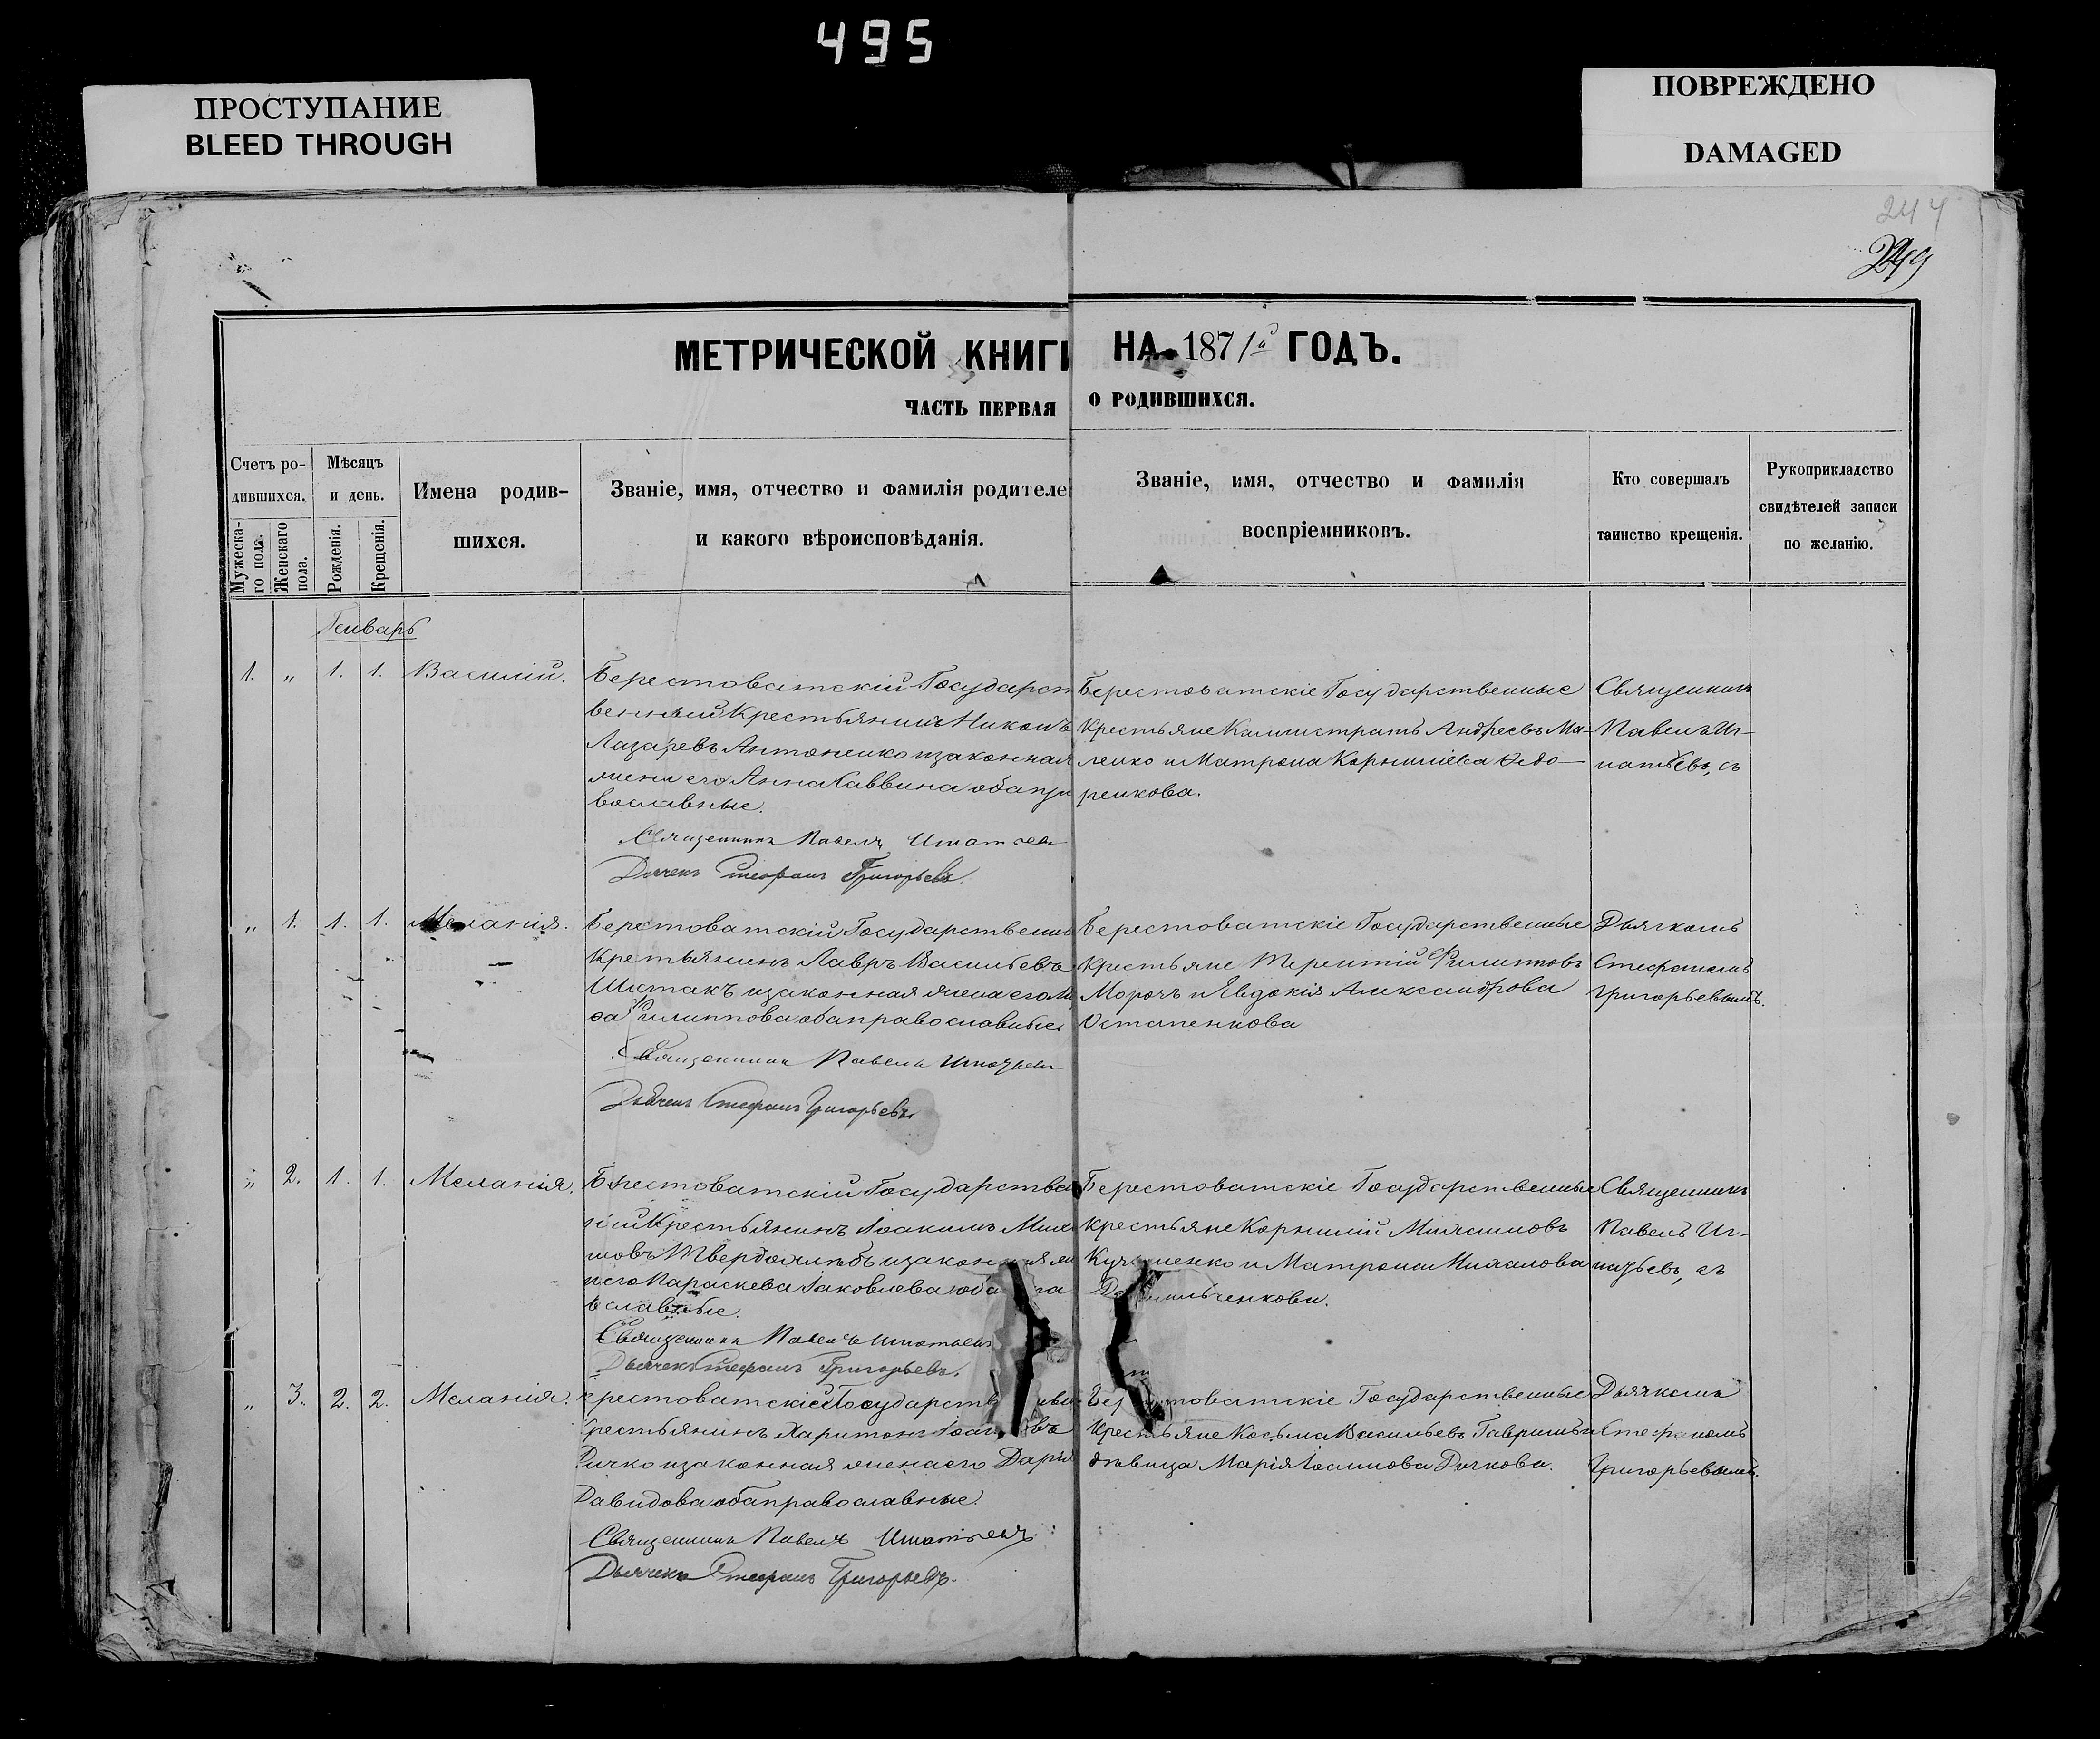 495
ПРОСТУПАНИЕ
BLEED THROUGH
ПОВРЕЖДЕНО
DAMAGED
244
МЕТРИЧЕСКОЙ КНИГИ НА 1871й ГОДЪ.
ЧАСТЬ ПЕРВАЯ О РОДИВШИХСЯ.
Счетъ ро-
дившихся.
Мужеска-
го пола.
Женскаго
пола.
Мѣсяцъ
и день.
Рожденія.
Крещенія.
Имена родив-
шихся.
Званіе, имя, отчество и фамилія родителе
и какого вѣроисповѣданія.
Званіе, имя, отчество и фамилія
воспріемниковъ.
Кто совершалъ
таинство крещенія.
Рукоприкладство
свидѣтелей записи
по желанію.
Генварь
1. „ 1. 1. Василій.
Берестоватскій Государст
венный Крестьянинъ Никонъ
Лазаревъ Антоненко и законная
жена его Анна Саввина оба пра
вославные.
Священникъ Павелъ
Дьячекъ Стефанъ Григорьевъ.
Берестоватскіе Государственные
Крестьяне Каллистратъ Андреевъ Ма-
ленко и Матрона Корнилієва Ѳедо-
ренкова.
Священникъ
Павелъ Иг-
натьевъ, съ
„ 1. 1. 1. Меланія.
Берестоватскій Государственн
Крестьянинъ Лавръ Васильевъ
Шистакъ и законная жена его
Филиппова оба православные
Священникъ Павелъ
Дьячекъ Стефанъ Григорьевъ.
Берестоватскіе Государственные
Крестьяне Терентій Филипповъ
Морочъ и Явдокія Александрова
Остапенкова
Дьячкомъ
Стефаномъ
Григорьевымъ.
„ 2. 1. 1. Меланія.
Берестоватскій Государствен
Крестьянинъ Іоакимъ
и законная
Параскева Іаковлева оба
вославные.
Священникъ Павелъ Игнатьевъ
Дьячекъ Стефанъ Григорьевъ.
Берестоватскіе Государственные
Крестьяне Корнилій
и Матрона
Священникъ
Павелъ Иг-
натьевъ, съ
„ 3. 2. 2. Меланія.
ерестоватскій Государств
рестьянинъ Харитонъ
Дичко и законная жена его Дарія
Давидова оба православные.
Священникъ Павелъ Игнатьевъ
Дьячекъ Стефанъ Григорьевъ.
Государственные
Крестьяне Косьма Васильевъ
дѣвица Марія Іосипова Дичкова.
Дьячкомъ
Стефаномъ
Григорьевымъ.